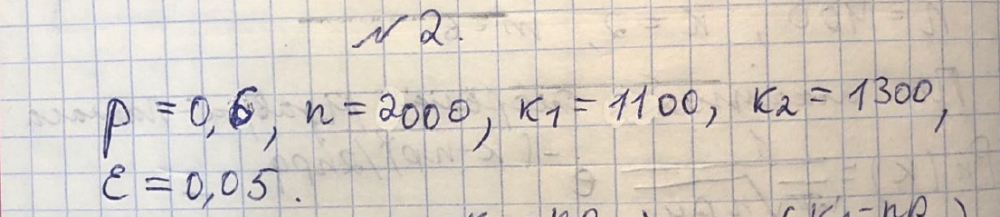 № 2.
p = 0,6, n = 2000, к1 = 1100, к2 = 1300,
ε = 0,05.